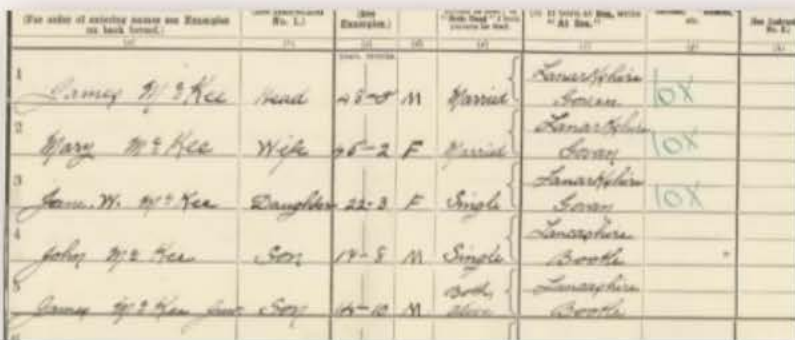 (For order of entering names see Examples on back hereof.)
(See Examples.)
(a)
1 James McKee Head 48-8 M Married { Lanarkshire Govan 10X
2 Mary McKee Wife 46-2 F Married { Lanarkshire Govan 10X
3 Jane. W. McKee Daughter 22-3 F Single { Lanarkshire Govan 10X
4 John McKee Son 17-8 M Single { Lancashire Bootle
5 James McKee Son M Both alive { Lancashire Bootle